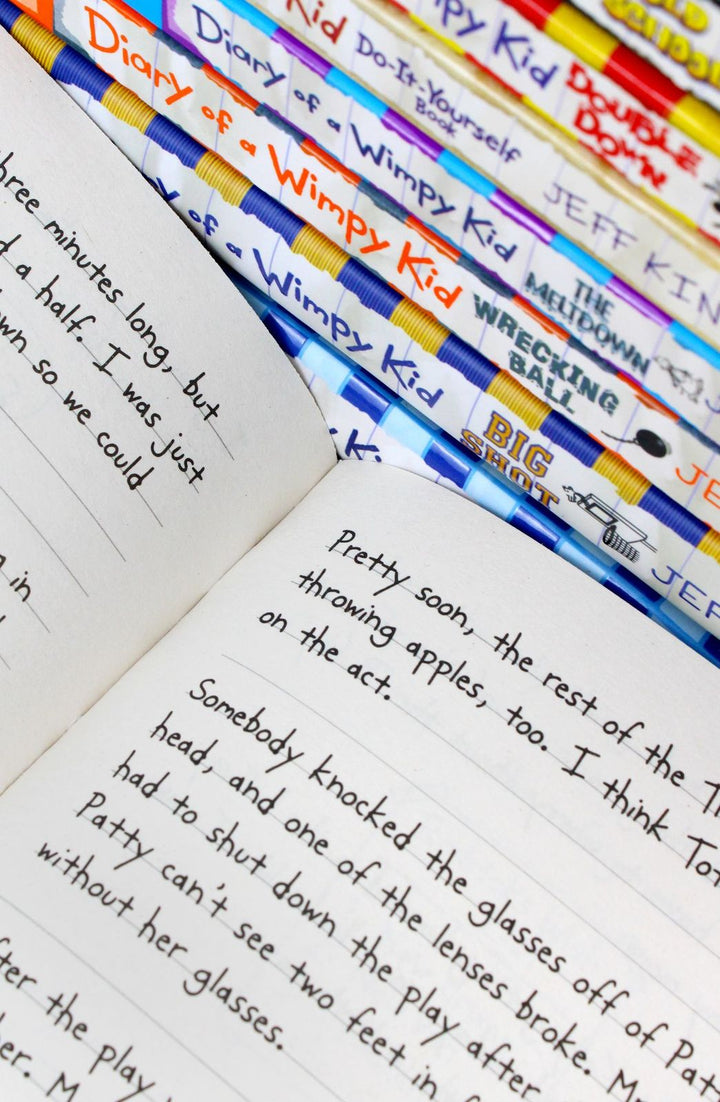 OLD
Wimpy Kid DOUBLE DOWN
Kid Do-It-Yourself Book JEFF KIN
Diary of a Wimpy Kid THE MELTDOWN
Diary of a Wimpy Kid WRECKING BALL JE
of a Wimpy Kid BIG SHOT JEF
minutes long, but
a half. I was just
so we could
in
Pretty soon, the rest of the
throwing apples, too. I think
on the act.
Somebody knocked the glasses off of
head, and one of the lenses broke.
had to shut down the play after
Patty can't see two feet in
without her glasses.
the play